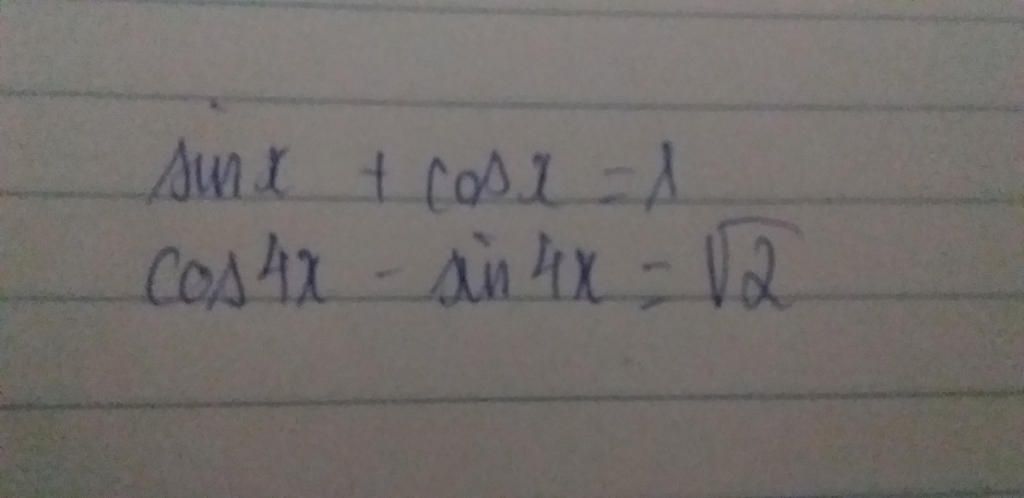 sin x + cos x = 1
cos 4x - sin 4x = √2